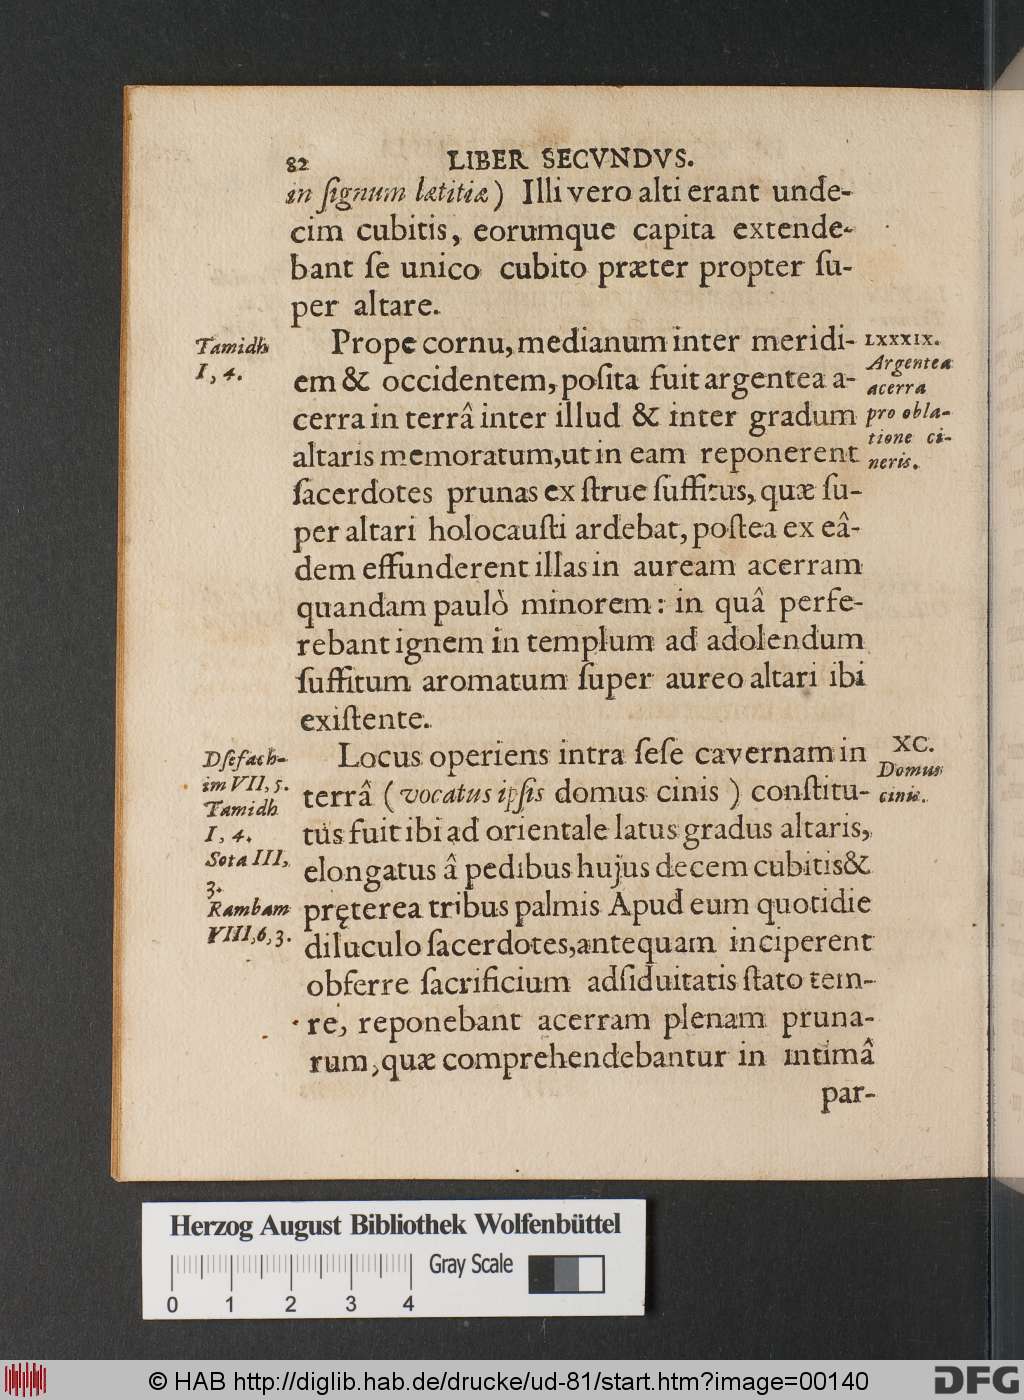 82 LIBER SECVNDVS.
in ſignum lætitiæ) Illi vero alti erant unde-
cim cubitis, eorumque capita extende-
bant ſe unico cubito præter propter ſu-
per altare.
Tamidh
I, 4.
Prope cornu, medianum inter meridi-
em & occidentem, poſita fuit argentea a-
cerra in terrâ inter illud & inter gradum
altaris memoratum, ut in eam reponerent
ſacerdotes prunas ex ſtrue ſuffitus, quæ ſu-
per altari holocauſti ardebat, poſtea ex eâ-
dem effunderent illas in auream acerram
quandam paulò minorem: in quâ perfe-
rebant ignem in templum ad adolendum
ſuffitum aromatum ſuper aureo altari ibi
exiſtente.
LXXXIX.
Argentea
acerra
pro obla-
tione ci-
neris.
Dſefach-
im VII, 5.
Tamidh
I, 4.
Sota III,
3.
Rambam
VIII, 6, 3.
Locus operiens intra ſeſe cavernam in
terrâ (vocatus ipſis domus cinis) conſtitu-
tus fuit ibi ad orientale latus gradus altaris,
elongatus â pedibus hujus decem cubitis &
pręterea tribus palmis Apud eum quotidie
diluculo ſacerdotes, antequam inciperent
obferre ſacrificium adſiduitatis ſtato tem-
re, reponebant acerram plenam pruna-
rum, quæ comprehendebantur in intimâ
par-
XC.
Domus
cinis.
Herzog August Bibliothek Wolfenbüttel
Gray Scale
0 1 2 3 4
© HAB http://diglib.hab.de/drucke/ud-81/start.htm?image=00140
DFG